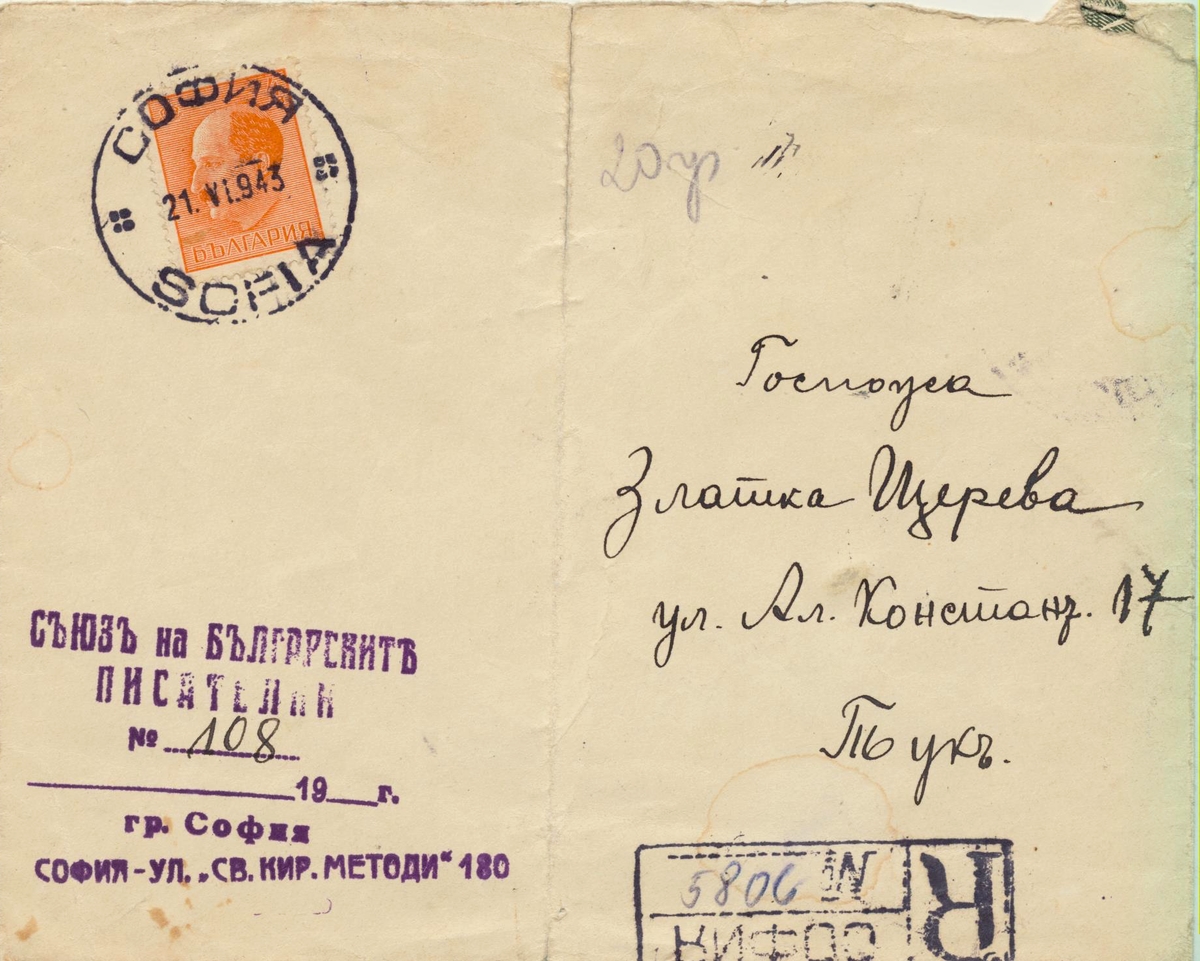 СОФИЯ
21. VI.943
SOFIA
БЪЛГАРИЯ
20 гр
Госпожа
Златка Щерева
ул. Ал. Константъ. 17
Тукъ.
СЪЮЗЪ на БЪЛГАРСКИТѢ
ПИСАТЕЛИ
№ 108
19 г.
гр. София
СОФИЯ - УЛ. „СВ. КИР. МЕТОДИ“ 180
R
№ 5806
СОФИЯ